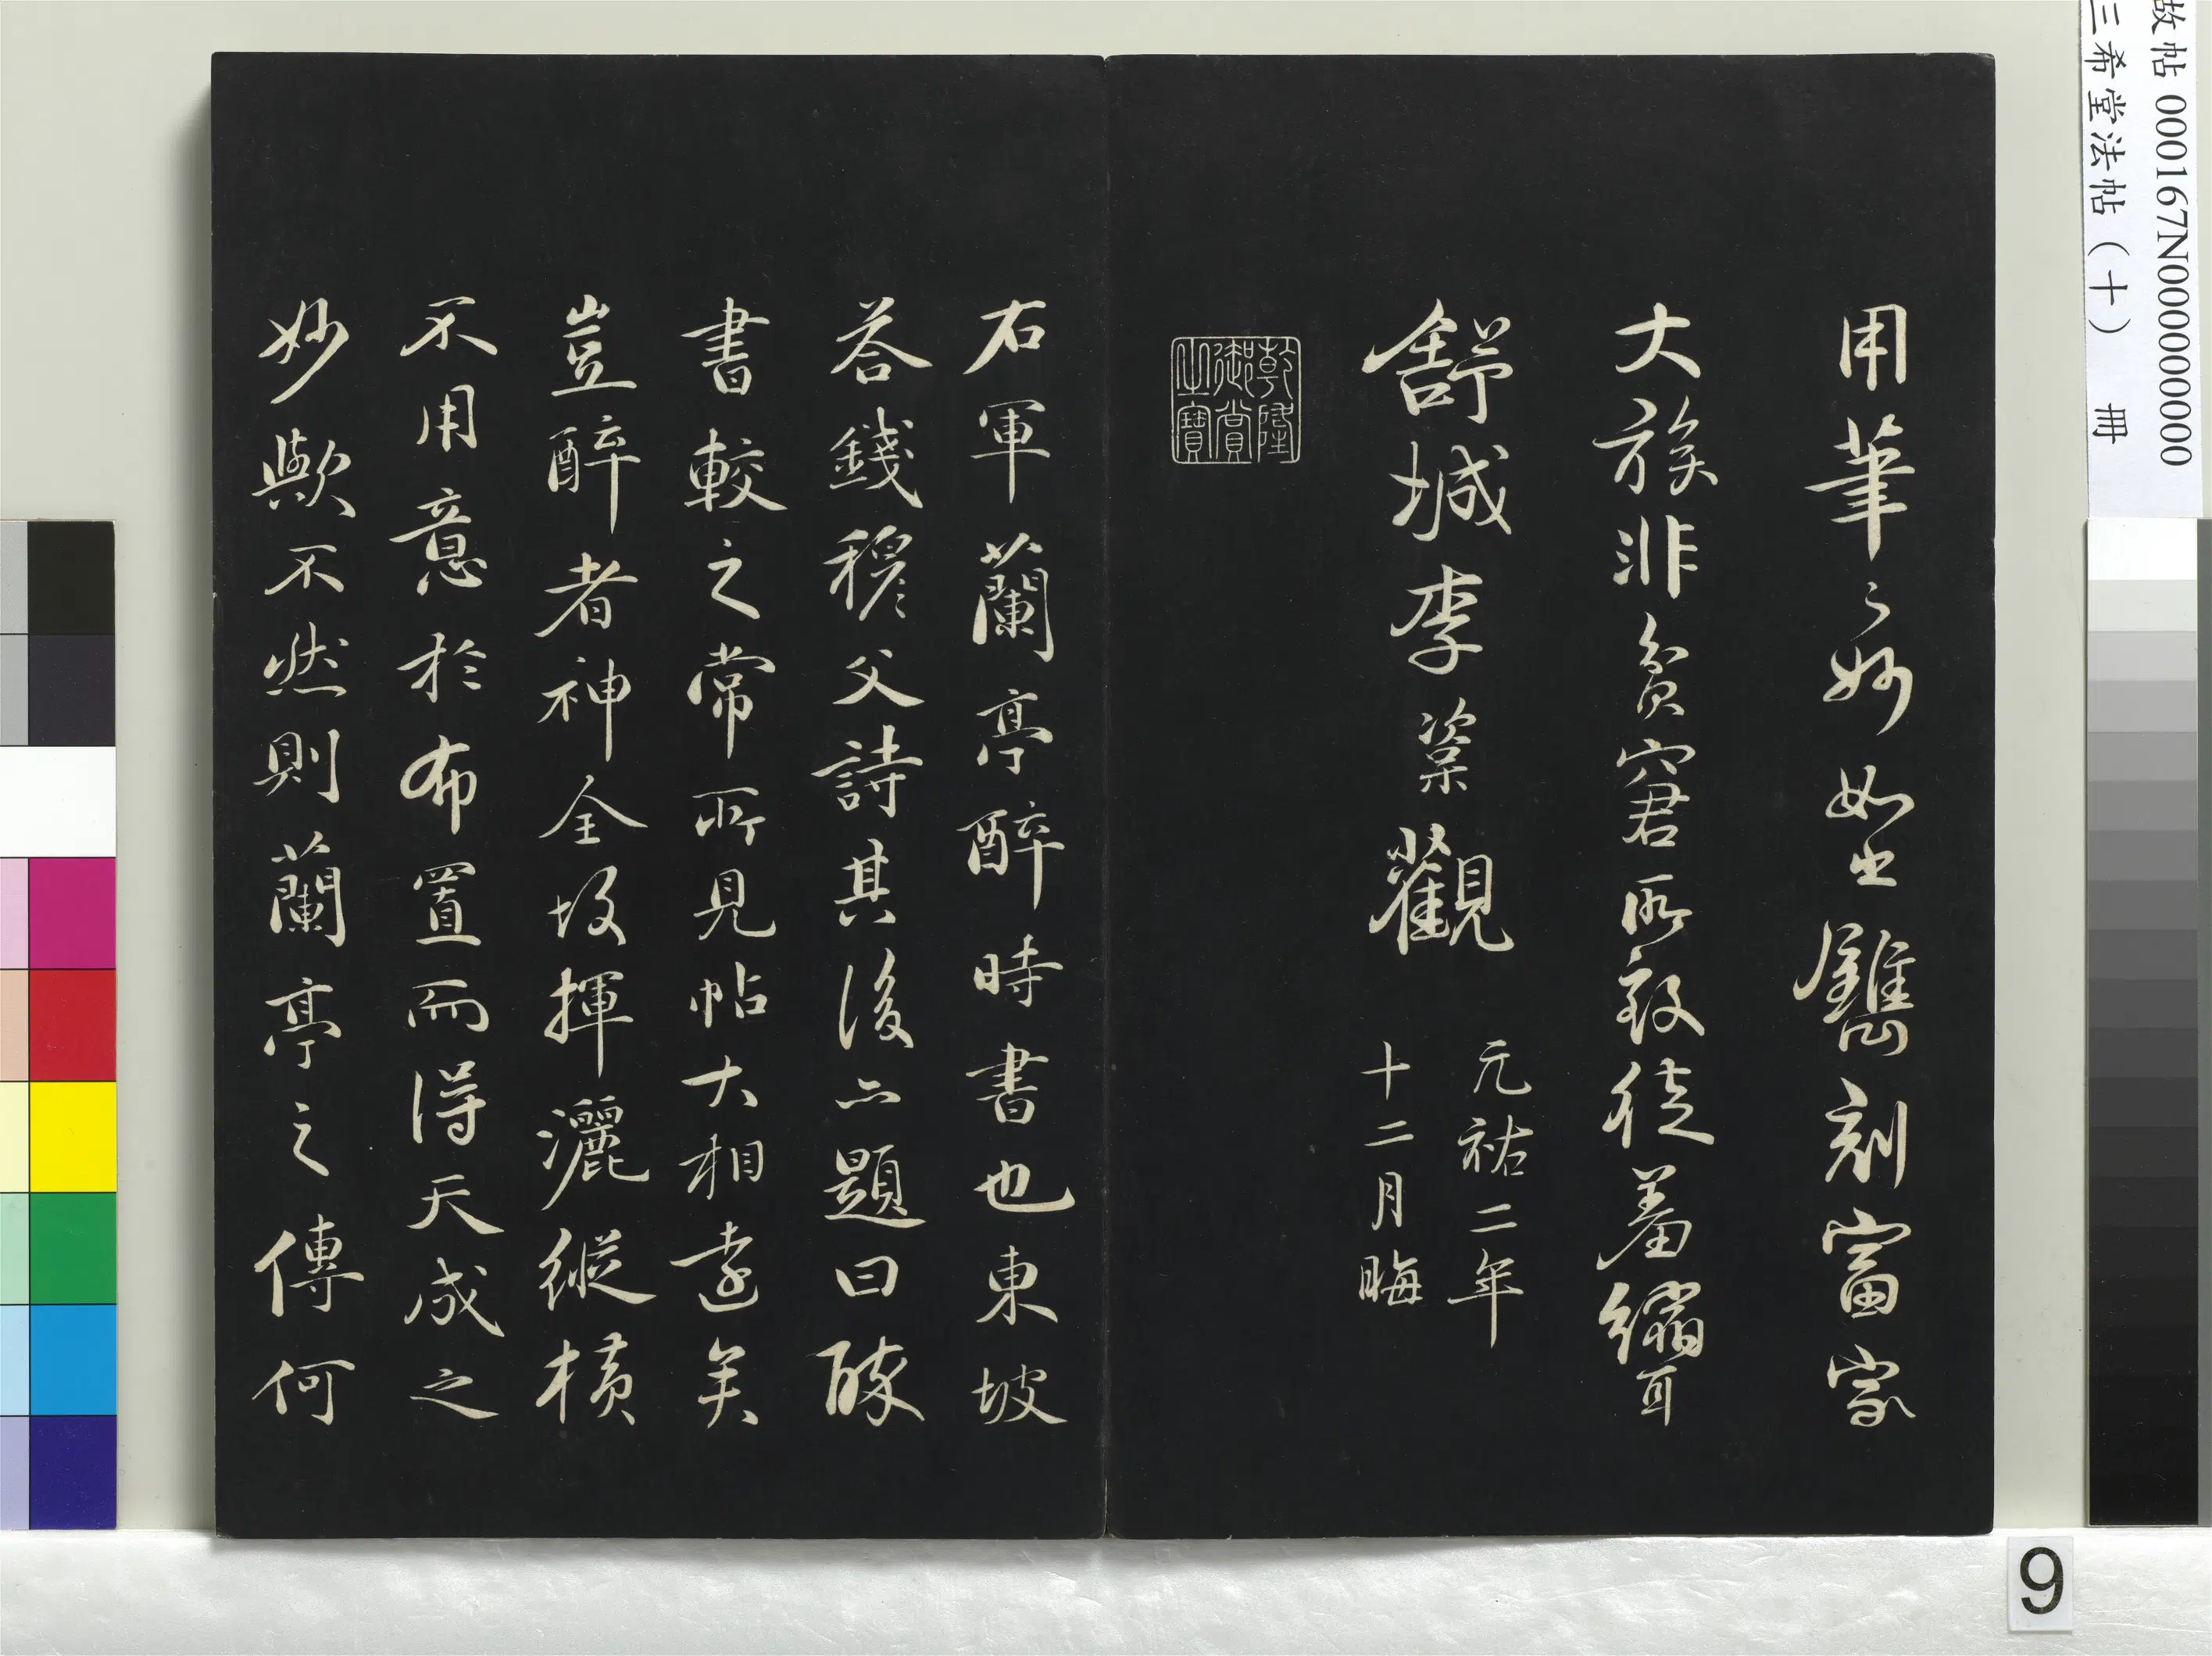 故帖 000167N000000000
三希堂法帖（十） 冊
用筆之妙如此鐫刻富家
大族非貧窘所致徒羞縮耳
舒城李楶觀
元祐二年
十二月晦
乾隆御賞之寶
右軍蘭亭醉時書也東坡
荅錢穆父詩其後亦題曰醉
書較之常所見帖大相遠矣
豈醉者神全故揮灑縱橫
不用意於布置而得天成之
妙歟不然則蘭亭之傳何
9